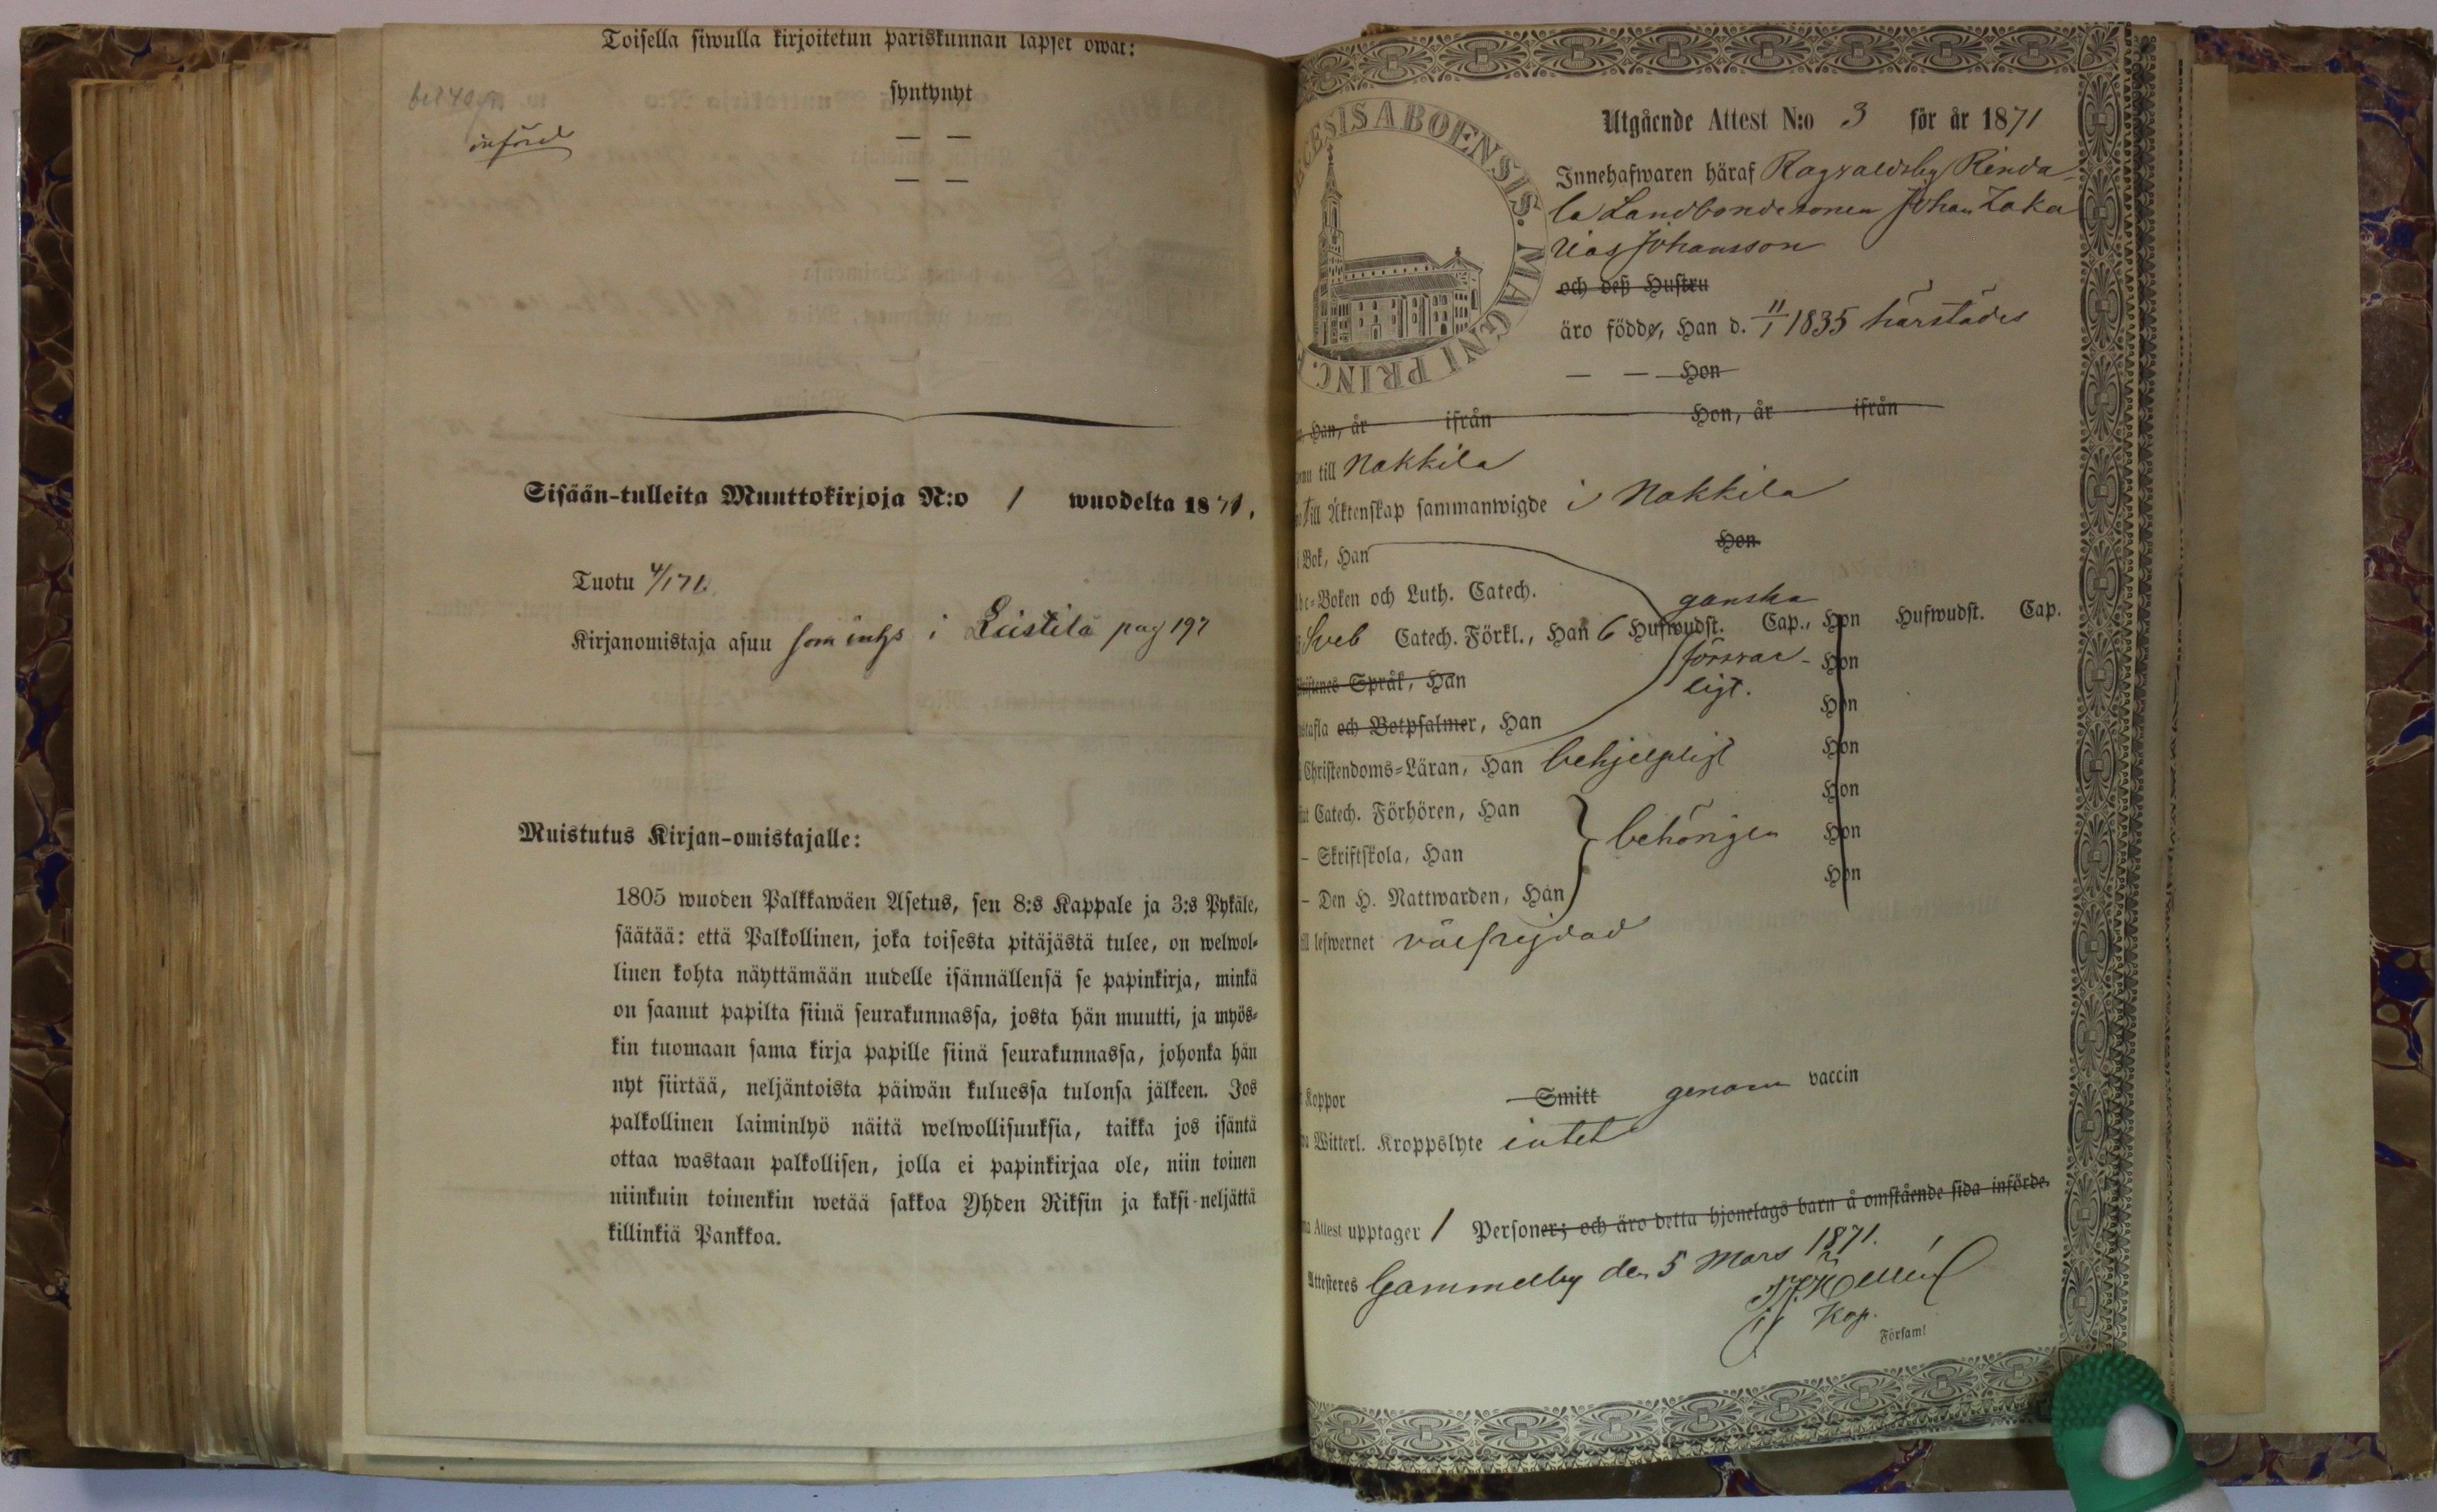 Toisella siwulla kirjoitetun pariskunnan lapset owat:
införd
syntynyt
— —
— —
Sisään-tulleita Muuttokirjoja N:o 1 wuodelta 1871.
Tuotu 4/1 71.
Kirjanomistaja asuu som inhs i Liistilä pag 197
Muistutus Kirjan-omistajalle:
1805 wuoden Palkkawäen Asetus, sen 8:s Kappale ja 3:s Pykäle,
säätää: että Palkollinen, joka toisesta pitäjästä tulee, on welwol-
linen kohta näyttämään uudelle isännällensä se papinkirja, minkä
on saanut papilta siinä seurakunnassa, josta hän muutti, ja myös-
kin tuomaan sama kirja papille siinä seurakunnassa, johonka hän
nyt siirtää, neljäntoista päiwän kuluessa tulonsa jälkeen. Jos
palkollinen laiminlyö näitä welwollisuuksia, taikka jos isäntä
ottaa wastaan palkollisen, jolla ei papinkirjaa ole, niin toinen
niinkuin toinenkin wetää sakkoa Yhden Riksin ja kaksi-neljättä
killinkiä Pankkoa.
ECESIS ABOENSIS. MAGNI PRINC.
Utgående Attest N:o 3 för år 1871
Innehafwaren häraf Ragvaldsby Rinda-
la Landbondesonen Johan Zaka
rias Johansson
och deß Hustru
äro födde, Han d. 11/1 1835 härstädes
— — Hon
Han, år ifrån Hon, år ifrån
till Nakkila
till Äktenskap sammanwigde i Nakkila
i Bok, Han Hon
Abc-Boken och Luth. Catech. ganska
Sveb Catech. Förkl., Han 6 Hufwudst. Cap., Hon Hufwudst. Cap.
försvar- Hon
Språk, Han ligt.
Hon
och Botpsalmer, Han
Hon
Christendoms-Läran, Han behjelpligt
Hon
Catech. Förhören, Han
behörigen Hon
– Skriftskola, Han
Hon
– Den H. Nattwarden, Han
till lefwernet välfrejdad
Koppor Smitt genom vaccin
Witterl. Kroppslyte intet
Attest upptager 1 Personer; och äro detta hjonelags barn å omstående sida införde.
Attesteres Gammelby den 5 Mars 1871.
Kap.
Församl